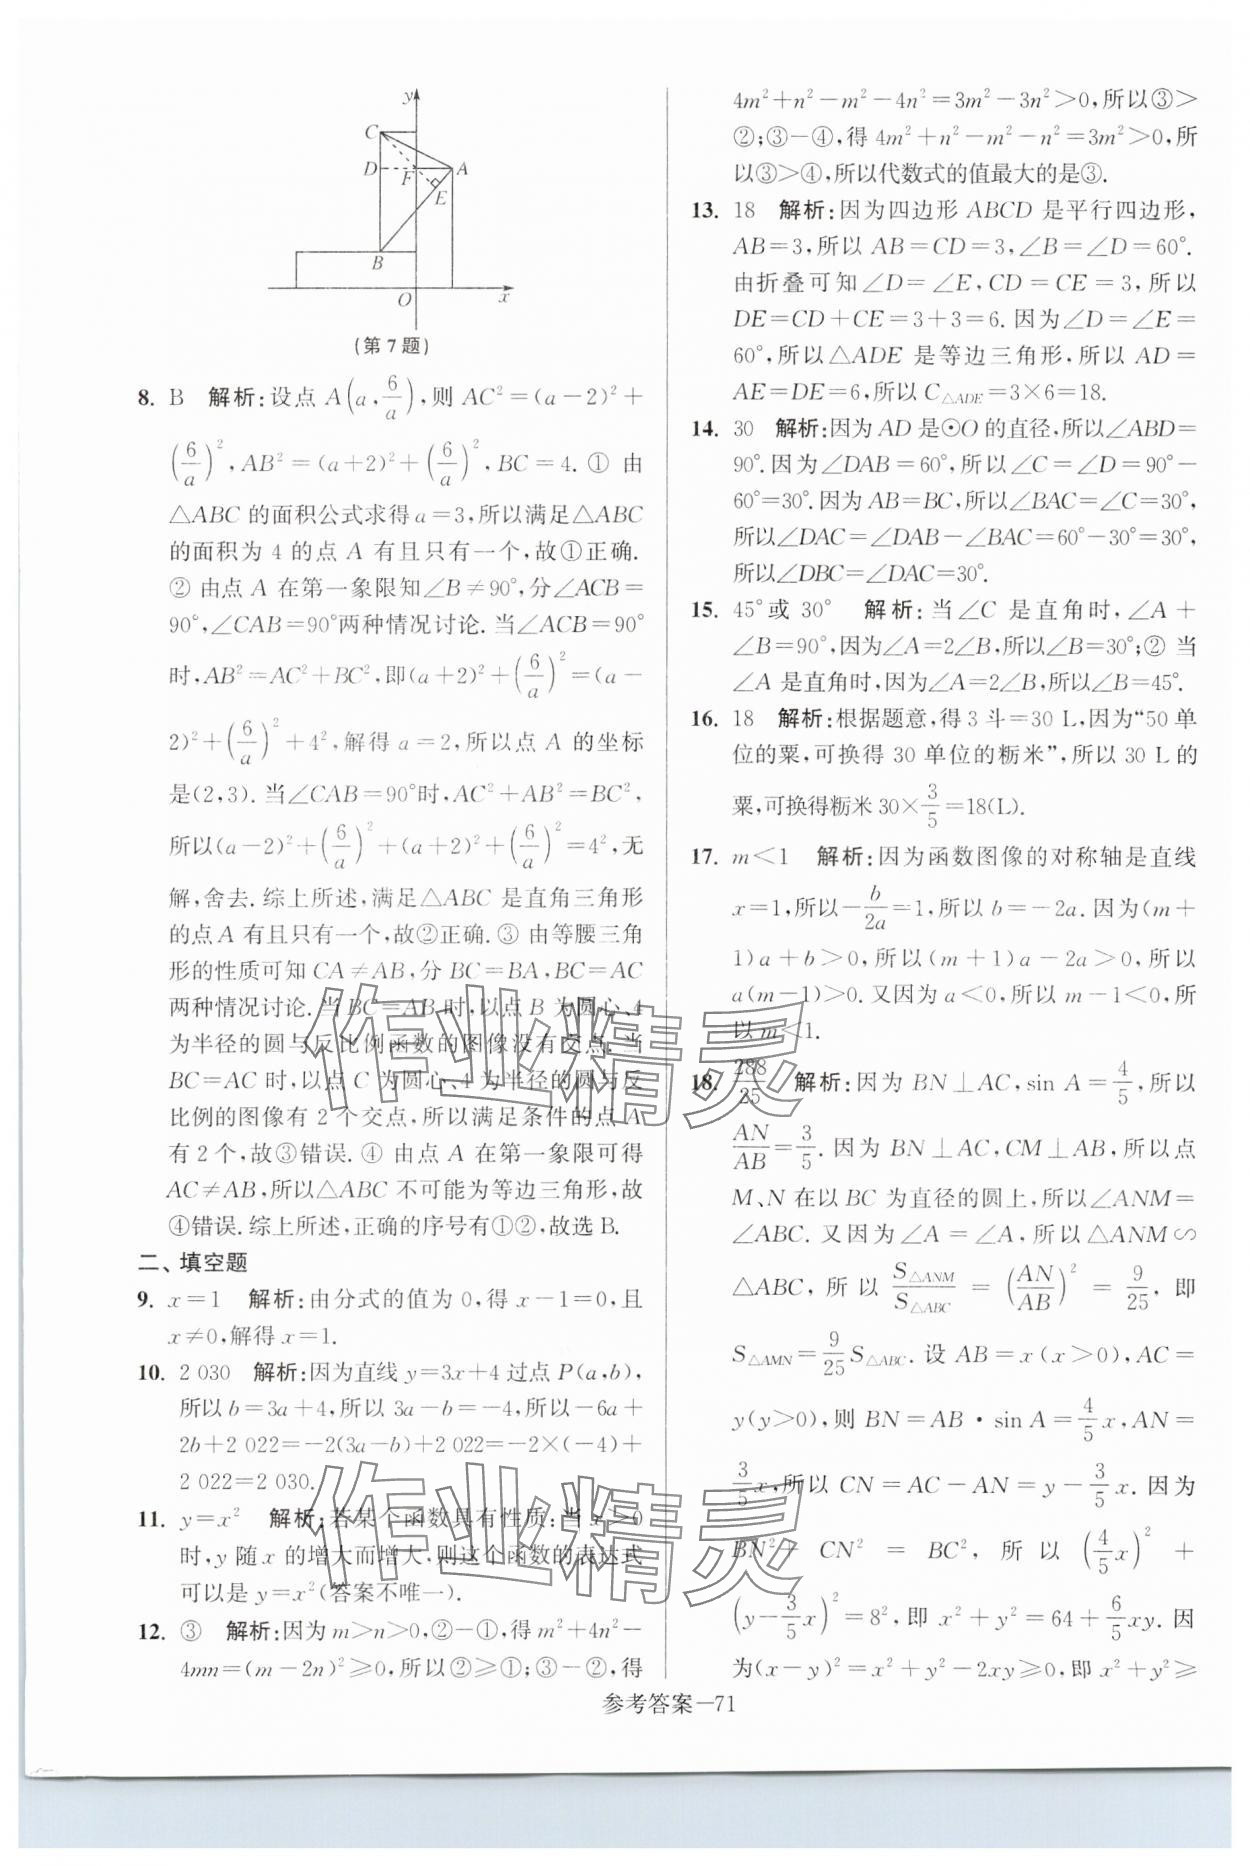 y
C
D
F
A
E
B
O
x
(第7题)
8. B 解析:设点 A(a,6/a),则 AC²=(a-2)²+
(6/a)²,AB²=(a+2)²+(6/a)²,BC=4.① 由
△ABC 的面积公式求得 a=3,所以满足△ABC
的面积为 4 的点 A 有且只有一个,故①正确.
② 由点 A 在第一象限知∠B≠90°,分∠ACB=
90°,∠CAB=90°两种情况讨论.当∠ACB=90°
时,AB²=AC²+BC²,即(a+2)²+(6/a)²=(a-
2)²+(6/a)²+4²,解得 a=2,所以点 A 的坐标
是(2,3).当∠CAB=90°时,AC²+AB²=BC²,
所以(a-2)²+(6/a)²+(a+2)²+(6/a)²=4²,无
解,舍去.综上所述,满足△ABC 是直角三角形
的点 A 有且只有一个,故②正确.③ 由等腰三角
形的性质可知 CA≠AB,分 BC=BA,BC=AC
两种情况讨论.当 BC=AB 时,以点 B 为圆心、4
为半径的圆与反比例函数的图像没有交点.当
BC=AC 时,以点 C 为圆心、4 为半径的圆与反
比例的图像有 2 个交点,所以满足条件的点 A
有 2 个,故③错误.④ 由点 A 在第一象限可得
AC≠AB,所以△ABC 不可能为等边三角形,故
④错误.综上所述,正确的序号有①②,故选 B.
二、填空题
9. x=1 解析:由分式的值为 0,得 x-1=0,且
x≠0,解得 x=1.
10. 2 030 解析:因为直线 y=3x+4 过点 P(a,b),
所以 b=3a+4,所以 3a-b=-4,所以-6a+
2b+2 022=-2(3a-b)+2 022=-2×(-4)+
2 022=2 030.
11. y=x² 解析:若某个函数具有性质:当 x>0
时,y 随 x 的增大而增大,则这个函数的表达式
可以是 y=x²(答案不唯一).
12. ③ 解析:因为 m>n>0,②-①,得 m²+4n²-
4mn=(m-2n)²≥0,所以②≥①;③-②,得
4m²+n²-m²-4n²=3m²-3n²>0,所以③>
②;③-④,得 4m²+n²-m²-n²=3m²>0,所
以③>④,所以代数式的值最大的是③.
13. 18 解析:因为四边形 ABCD 是平行四边形,
AB=3,所以 AB=CD=3,∠B=∠D=60°.
由折叠可知∠D=∠E,CD=CE=3,所以
DE=CD+CE=3+3=6.因为∠D=∠E=
60°,所以△ADE 是等边三角形,所以 AD=
AE=DE=6,所以 C△ADE=3×6=18.
14. 30 解析:因为 AD 是⊙O 的直径,所以∠ABD=
90°.因为∠DAB=60°,所以∠C=∠D=90°-
60°=30°.因为 AB=BC,所以∠BAC=∠C=30°,
所以∠DAC=∠DAB-∠BAC=60°-30°=30°,
所以∠DBC=∠DAC=30°.
15. 45°或 30° 解析:当∠C 是直角时,∠A+
∠B=90°,因为∠A=2∠B,所以∠B=30°;② 当
∠A 是直角时,因为∠A=2∠B,所以∠B=45°.
16. 18 解析:根据题意,得 3 斗=30 L,因为“50 单
位的粟,可换得 30 单位的粝米”,所以 30 L 的
粟,可换得粝米 30×3/5=18(L).
17. m<1 解析:因为函数图像的对称轴是直线
x=1,所以-b/2a=1,所以 b=-2a.因为(m+
1)a+b>0,所以(m+1)a-2a>0,所以
a(m-1)>0.又因为 a<0,所以 m-1<0,所
以 m<1.
18. 288/25 解析:因为 BN⊥AC,sin A=4/5,所以
AN/AB=3/5.因为 BN⊥AC,CM⊥AB,所以点
M、N 在以 BC 为直径的圆上,所以∠ANM=
∠ABC.又因为∠A=∠A,所以△ANM∽
△ABC,所以 S△ANM/S△ABC=(AN/AB)²=9/25,即
S△AMN=9/25S△ABC.设 AB=x(x>0),AC=
y(y>0),则 BN=AB·sin A=4/5x,AN=
3/5x,所以 CN=AC-AN=y-3/5x.因为
BN²+CN²=BC²,所以(4/5x)²+
(y-3/5x)²=8²,即 x²+y²=64+6/5xy.因
为(x-y)²=x²+y²-2xy≥0,即 x²+y²≥
参考答案—71
作业精灵
作业精灵